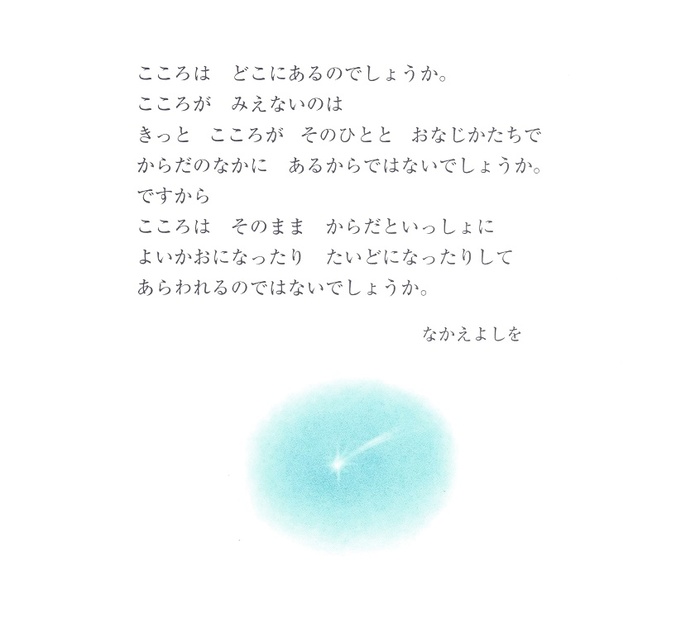 こころは　どこにあるのでしょうか。
こころが　みえないのは
きっと　こころが　そのひとと　おなじかたちで
からだのなかに　あるからではないでしょうか。
ですから
こころは　そのまま　からだといっしょに
よいかおになったり　たいどになったりして
あらわれるのではないでしょうか。
なかえよしを